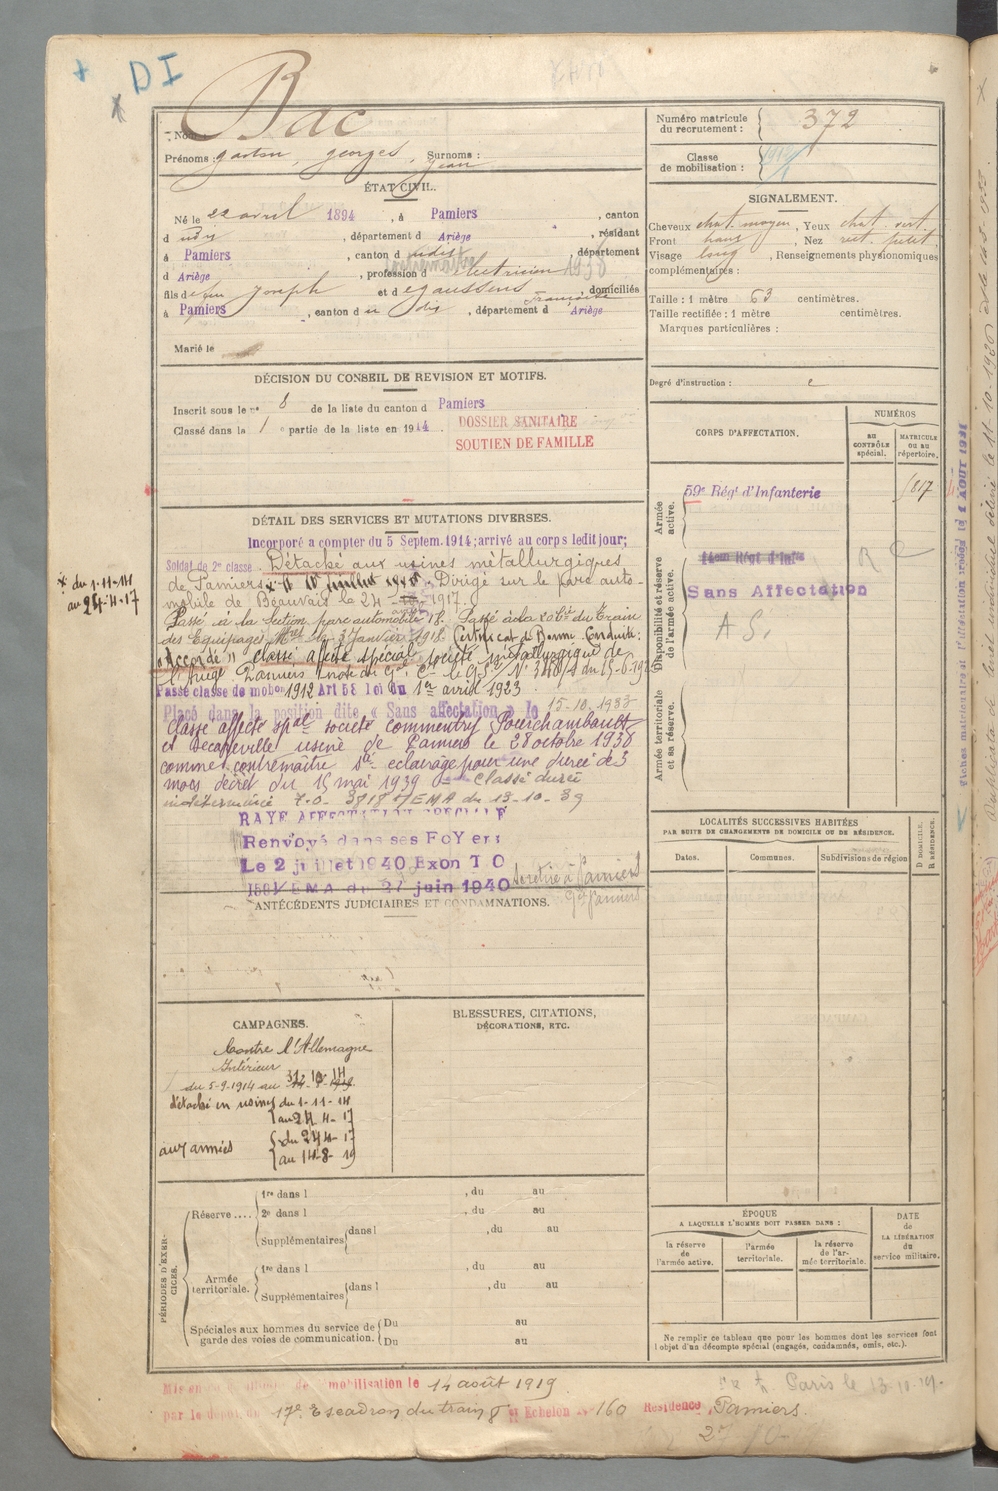 DI
Bac
Nom
Prénoms : gaston, georges, Jean Surnoms :
Numéro matricule du recrutement : 372
Classe de mobilisation :
ÉTAT CIVIL.
Né le 22 avril 1894, à Pamiers, canton
d udis, département d Ariège, résidant
à Pamiers, canton d udis, département
d Ariège, profession d électricien
fils de feu Joseph et de gaussens Françoise, domiciliés
à Pamiers, canton d u dis, département d Ariège
Marié le
SIGNALEMENT.
Cheveux chat. moyen, Yeux chat. vert.
Front , Nez rect. petit.
Visage long, Renseignements physionomiques
complémentaires :
Taille : 1 mètre 63 centimètres.
Taille rectifiée : 1 mètre centimètres.
Marques particulières :
Degré d'instruction :
DÉCISION DU CONSEIL DE REVISION ET MOTIFS.
Inscrit sous le n° 8 de la liste du canton d Pamiers
Classé dans la 1 e partie de la liste en 1914.
DOSSIER SANITAIRE
SOUTIEN DE FAMILLE
CORPS D'AFFECTATION.
NUMÉROS
AU CONTRÔLE spécial.
MATRICULE OU AU répertoire.
Armée active.
59e Régt d'Infanterie
817
Disponibilité et réserve de l'armée active.
14eme Régt d'Infie
Sans Affectation
A S.
Armée territoriale et sa réserve.
DÉTAIL DES SERVICES ET MUTATIONS DIVERSES.
Incorporé a compter du 5 Septem. 1914; arrivé au corps ledit jour;
Soldat de 2e classe. Détaché aux usines métallurgiques
de Pamiers. Dirigé sur le parc auto-
mobile de Beauvais le 24 1917.
x du 1-11-14
au 24-4-17
Passé à la Section parc automobile 18. Passé à la du Train
des Equipages Mres le 3 Janvier 1918. Certificat de Bonne Conduite:
"Accordé" classé affecté spécial société métallurgique de
l'Ariège Pamiers
Passé classe de mobon 1912 Art 58 loi du 1er avril 1923
Placé dans la position dite « Sans affectation » le 15-10-1933
Classé affecté spal société commentry Fourchambault
et Decazeville usine de Pamiers le 28 octobre 1938
comme contremaitre éclairage pour une durée de 3
mois décret du 15 mai 1939 Classé durée
indéterminée T.O. 3818 /EMA du 13-10-39
RAYE AFFECTATION SPECIALE
Renvoyé dans ses FoYers
Le 2 juillet 1940 Exon T O
1501/EMA du 27 juin 1940 se retire à Pamiers
ANTÉCÉDENTS JUDICIAIRES ET CONDAMNATIONS.
LOCALITÉS SUCCESSIVES HABITÉES
PAR SUITE DE CHANGEMENTS DE DOMICILE OU DE RÉSIDENCE.
Dates.
Communes.
Subdivisions de région
D DOMICILE.
R RÉSIDENCE.
CAMPAGNES.
Contre l'Allemagne
Intérieur
du 5-9-1914 au 31 10 14
détaché en usines du 1-11-14
au 24 4-17
aux armées du 24 4-17
au 14-8-19
BLESSURES, CITATIONS,
DÉCORATIONS, ETC.
PÉRIODES D'EXERCICES.
Réserve....
1re dans l , du au
2e dans l , du au
Supplémentaires dans l , du au
Armée territoriale.
1re dans l , du au
Supplémentaires dans l , du au
Spéciales aux hommes du service de garde des voies de communication.
Du au
Du au
ÉPOQUE
A LAQUELLE L'HOMME DOIT PASSER DANS :
la réserve de l'armée active.
l'armée territoriale.
la réserve de l'armée territoriale.
DATE de LA LIBÉRATION du service militaire.
Ne remplir ce tableau que pour les hommes dont les services font
l'objet d'un décompte spécial (engagés, condamnés, omis, etc.).
mobilisation le 14 août 1919
Paris le 13.10.19.
par le dépôt du 17e Escadron du train Echelon n° 160 Résidence Pamiers.